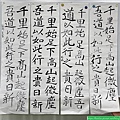 千里始足下高山起微塵
吾道亦如此行之貴日新
千里始足下高山起微塵吾
道亦如此行之貴日新
千里始足下高山起微塵
吾道亦如此行之貴日新